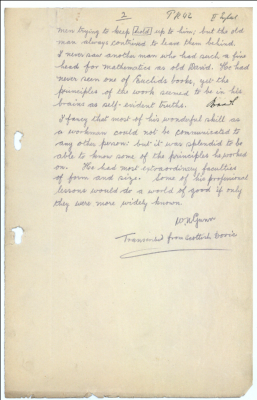 2
men trying to keep held up to him; but the old
man always continued to leave them behind.
I never saw another man who had such a fine
head for mathematics as old David. He had
never seen one of Euclid's books, yet the
principles of the work seemed to be in his
brains as self-evident truths.
I fancy that most of his wonderful skill as
a workman could not be communicated to
any other person; but it was splendid to be
able to know some of the principles he worked
on. He had most extraordinary faculties
of form and size. Some of his professional
lessons would do a world of good if only
they were more widely known.
Transcribed from Scottish